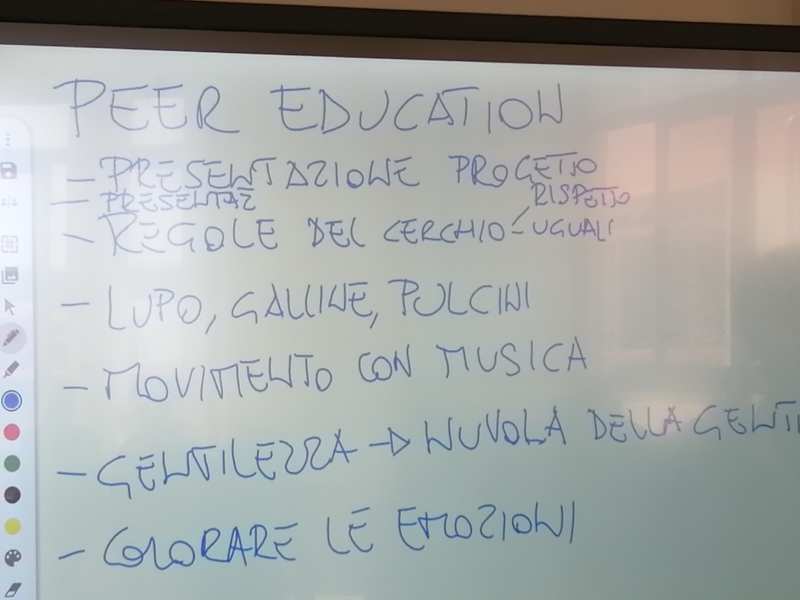 PEER EDUCATION
- PRESENTAZIONE PROGETTO
- PRESENTAZ
RISPETTO
- REGOLE DEL CERCHIO - UGUALI
- LUPO, GALLINE, PULCINI
- MOVIMENTO CON MUSICA
- GENTILEZZA → NUVOLA DELLA GENTI
- COLORARE LE EMOZIONI